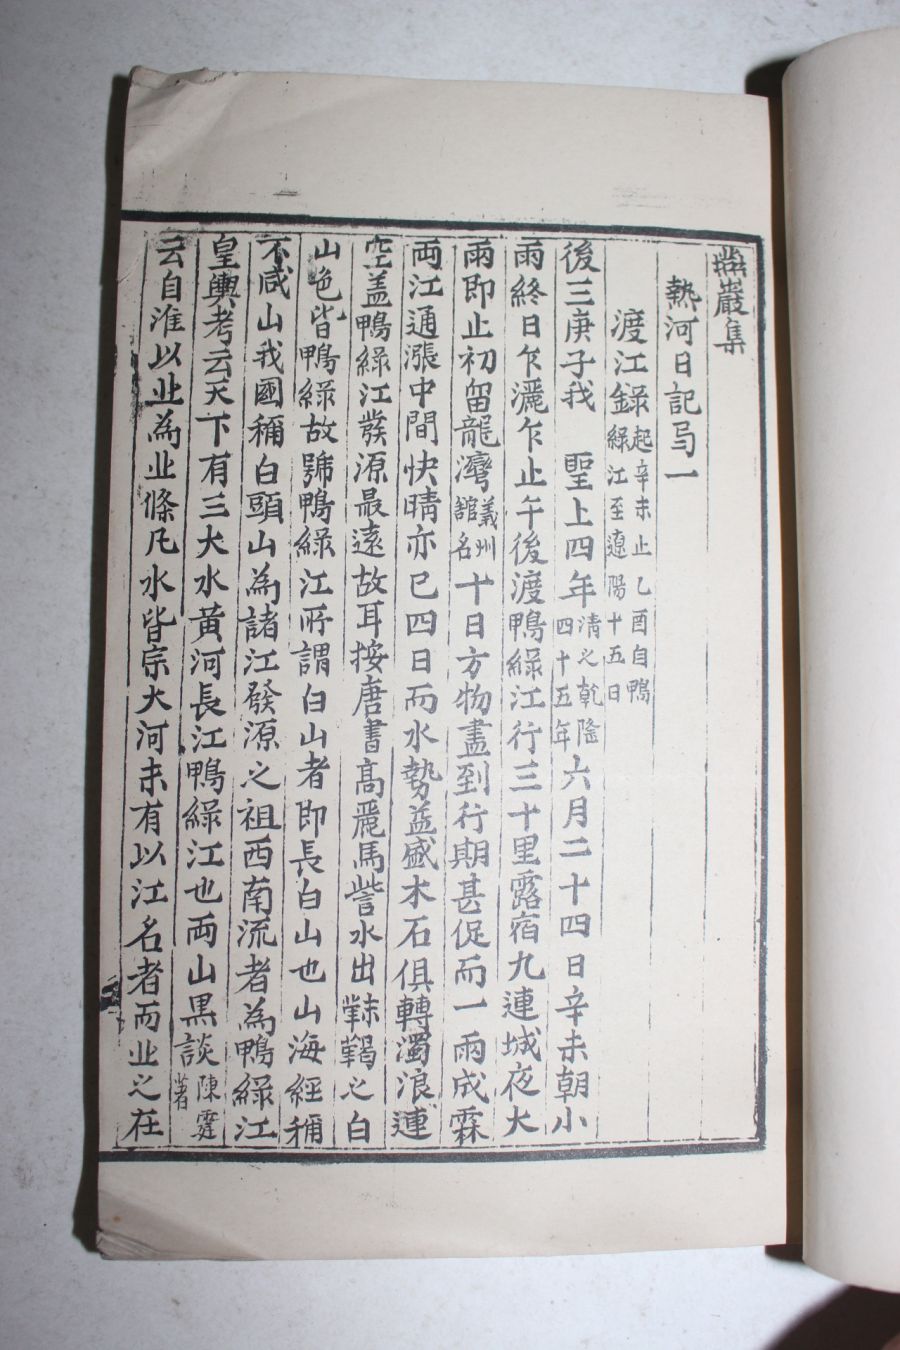 燕巖集
熱河日記弓一
渡江錄起辛未止乙酉自鴨綠江至遼陽十五日
後三庚子我 聖上四年清之乾隆四十五年六月二十四日辛未朝小
雨終日乍灑乍止午後渡鴨綠江行三十里露宿九連城夜大
雨即止初留龍灣義州舘名十日方物盡到行期甚促而一雨成霖
両江通漲中間快晴亦已四日而水勢益盛木石俱轉濁浪連
空盖鴨綠江發源最遠故耳按唐書高麗馬訾水出靺鞨之白
山色皆鴨綠故號鴨綠江所謂白山者即長白山也山海經稱
不咸山我國稱白頭山為諸江發源之祖西南流者為鴨綠江
皇輿考云天下有三大水黃河長江鴨綠江也両山黒談陳霆著
云自淮以北為北條凡水皆宗大河未有以江名者而北之在